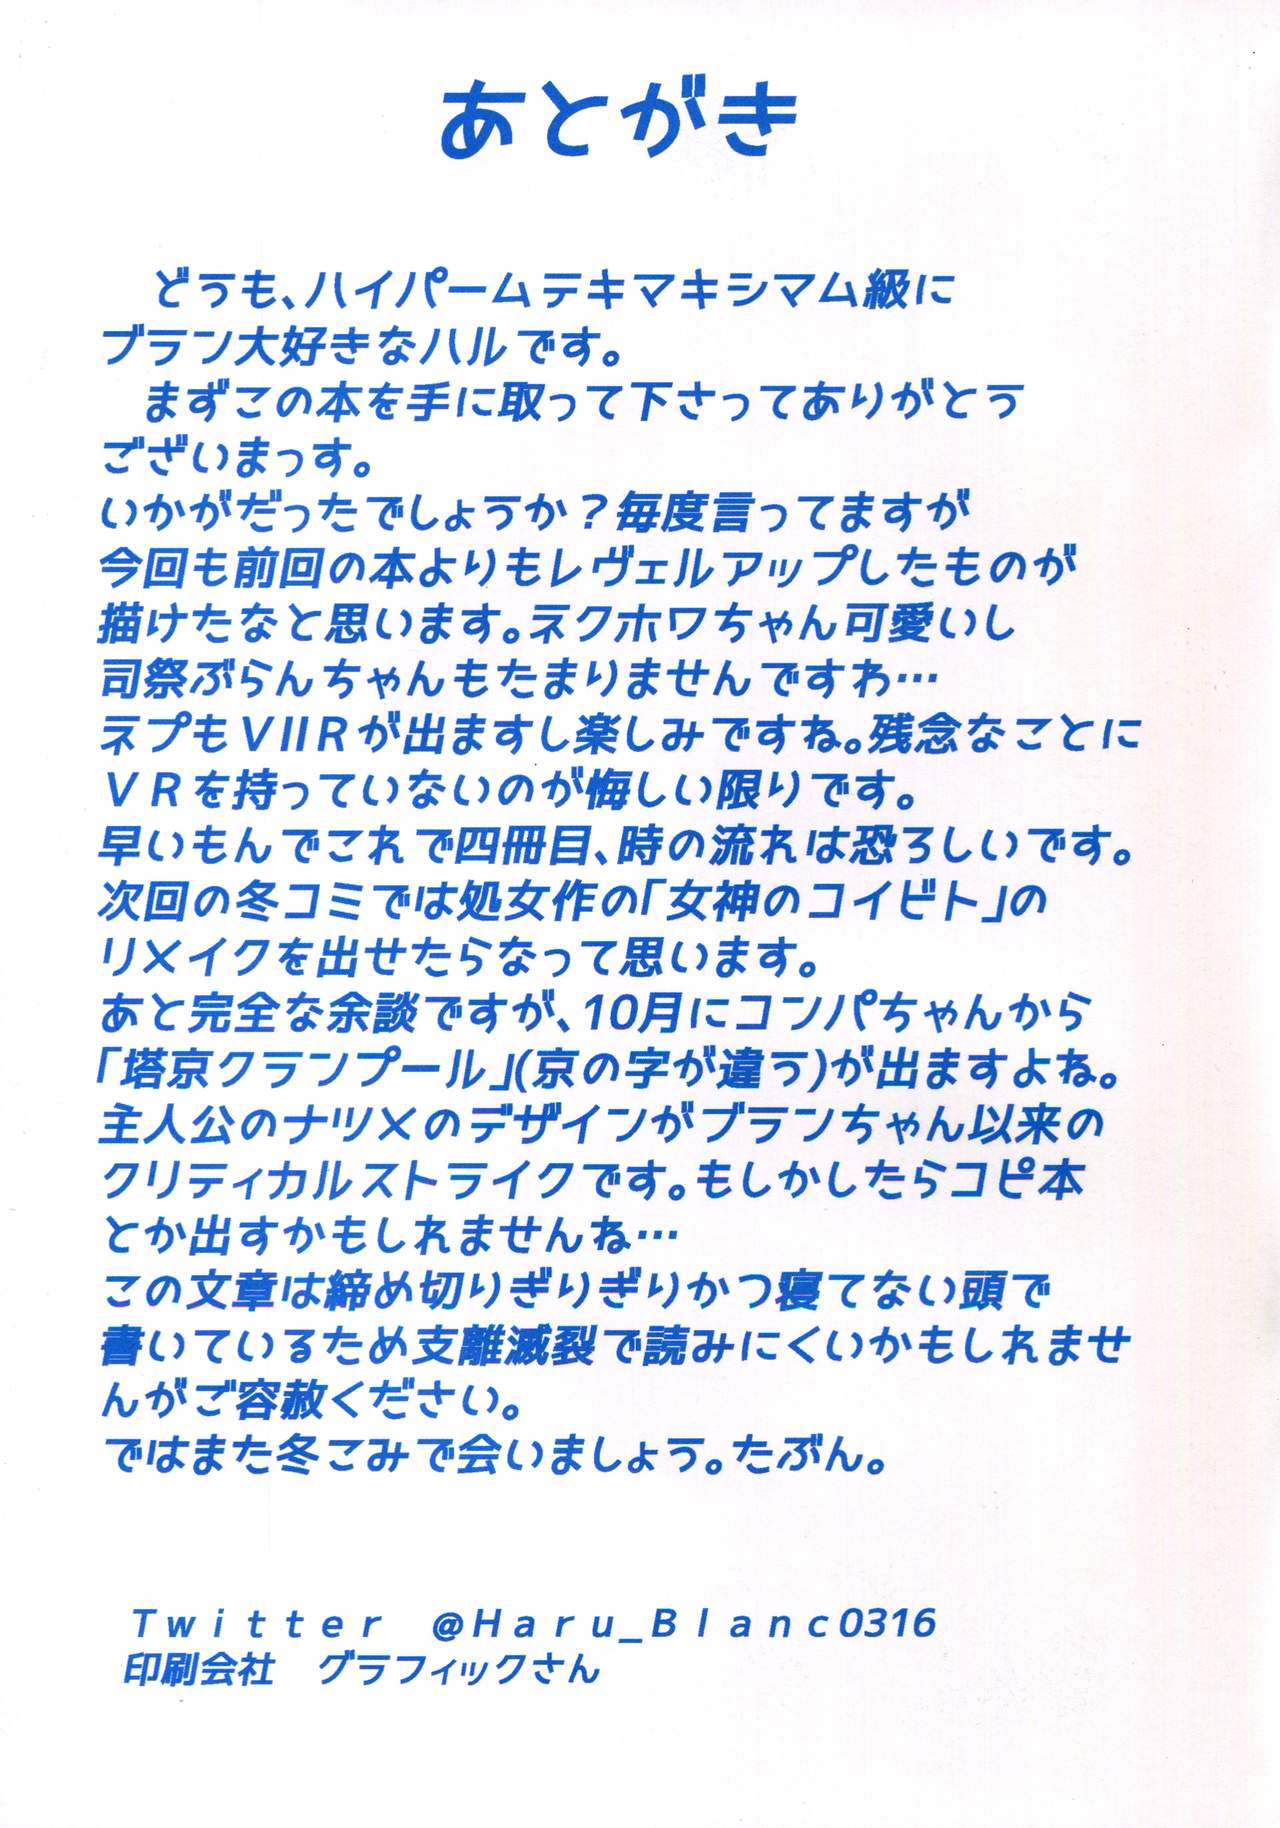 あとがき
どうも、ハイパームテキマキシマム級に
ブラン大好きなハルです。
まずこの本を手に取って下さってありがとう
ございまっす。
いかがだったでしょうか？毎度言ってますが
今回も前回の本よりもレヴェルアップしたものが
描けたなと思います。ネクホワちゃん可愛いし
司祭ぶらんちゃんもたまりませんですわ…
ネプもＶⅡＲが出ますし楽しみですね。残念なことに
ＶＲを持っていないのが悔しい限りです。
早いもんでこれで四冊目、時の流れは恐ろしいです。
次回の冬コミでは処女作の「女神のコイビト」の
リメイクを出せたらなって思います。
あと完全な余談ですが、10月にコンパちゃんから
「塔京クランプール」(京の字が違う)が出ますよね。
主人公のナツメのデザインがブランちゃん以来の
クリティカルストライクです。もしかしたらコピ本
とか出すかもしれませんね…
この文章は締め切りぎりぎりかつ寝てない頭で
書いているため支離滅裂で読みにくいかもしれませ
んがご容赦ください。
ではまた冬こみで会いましょう。たぶん。
Ｔｗｉｔｔｅｒ　＠Ｈａｒｕ＿Ｂｌａｎｃ0316
印刷会社　グラフィックさん